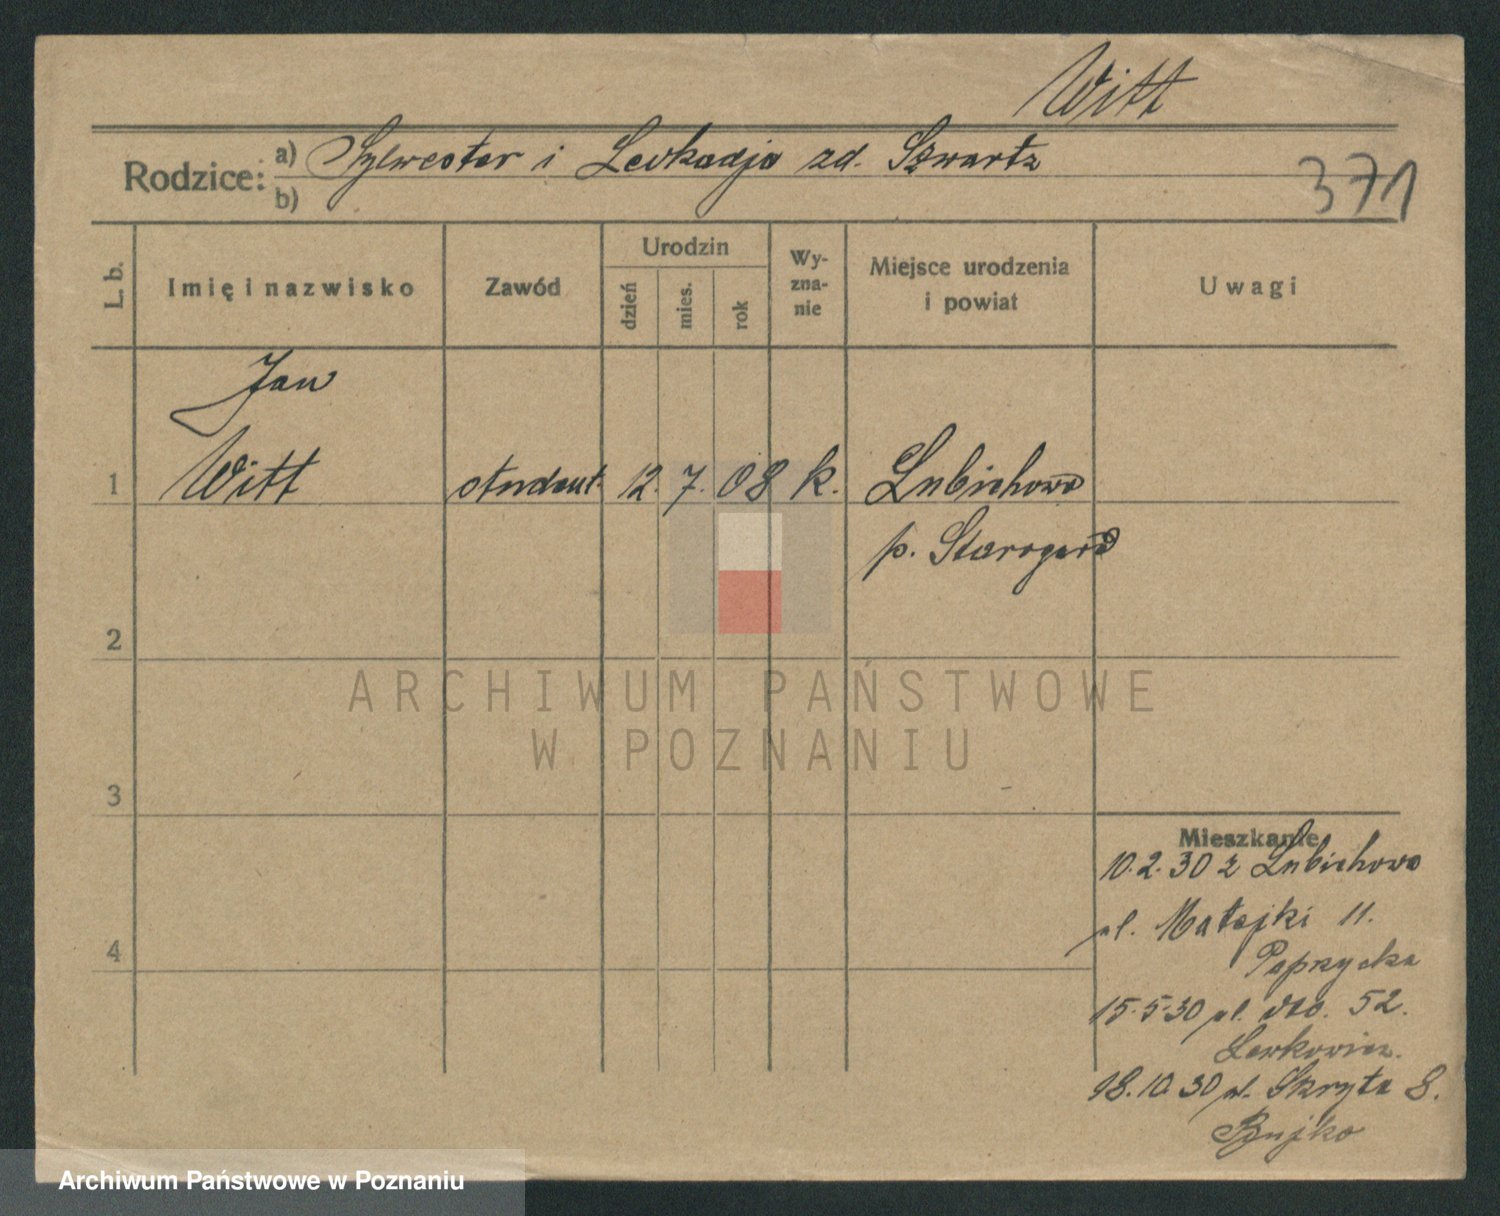 Witt
Rodzice: a) Sylwester i Leokadja zd. Szwartz
b)
371
L. b.
Imię i nazwisko
Zawód
Urodzin
dzień
mies.
rok
Wy-
zna-
nie
Miejsce urodzenia
i powiat
Uwagi
Jan
1 Witt student. 12. 7. 08 k. Lubichowo
p. Starogard
2
3
4
Mieszkanie
10.2.30 z Lubichowo
ul. Matejki 11.
Paprzycka
15.5.30 ul. dto. 52.
18.10.30 ul. Skryta 8.
Bujko
ARCHIWUM PAŃSTWOWE
W POZNANIU
Archiwum Państwowe w Poznaniu